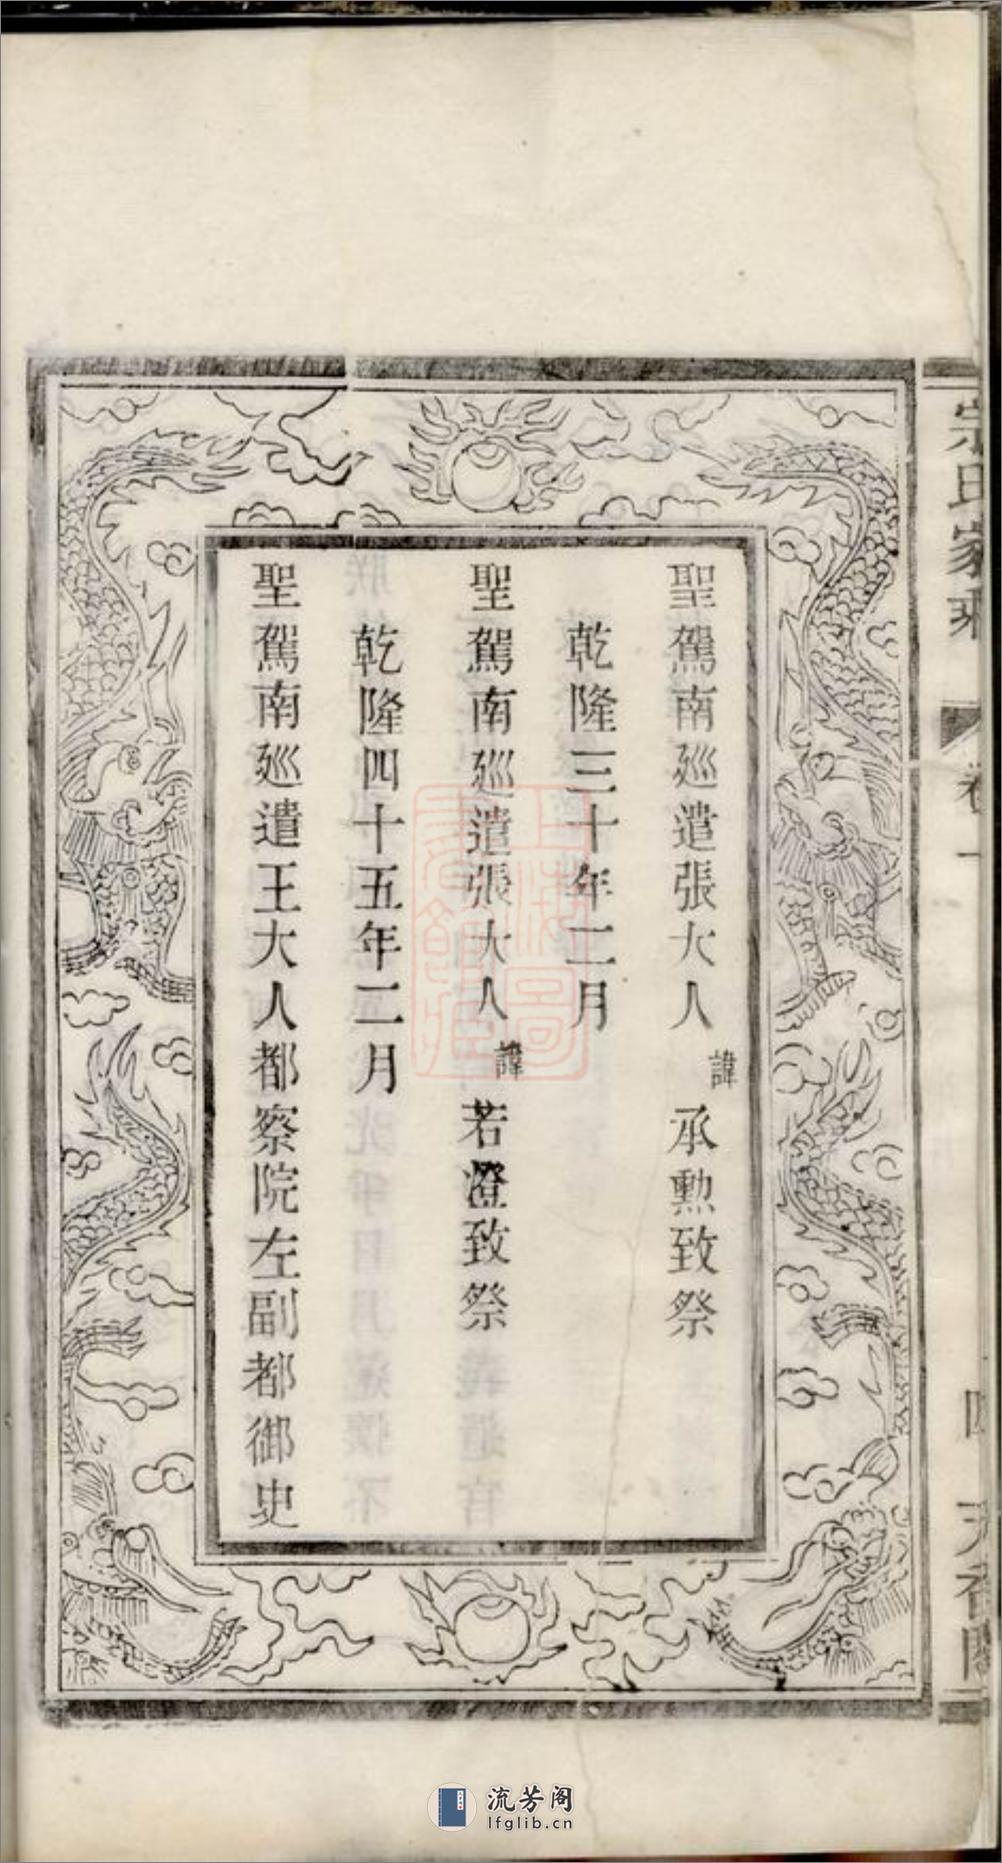 聖駕南廵遣張大人諱承勲致祭
乾隆三十年二月
聖駕南廵遣張大人諱若澄致祭
乾隆四十五年二月
聖駕南廵遣王大人都察院左副都御史
宗氏家乘
卷一
四
天香閣
上海圖書館藏
流芳阁
lfglib.cn